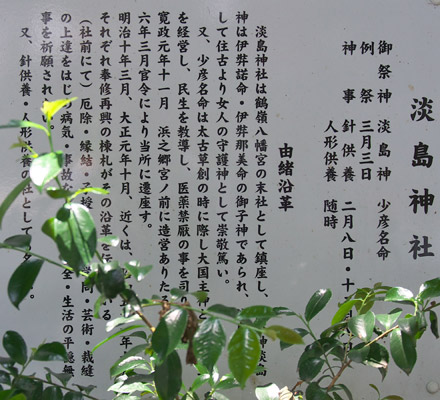 淡島神社
御祭神 淡島神 少彦名命
例祭 三月三日
神事 針供養 二月八日・十二
人形供養 随時
由緒沿革
淡島神社は鶴嶺八幡宮の末社として鎮座し、 神淡島
神は伊弉諾命・伊弉那美命の御子神であられ、
して住古より女人の守護神として崇敬篤い。
又、少彦名命は太古草創の時に際し大国主神と
を経営し、民生を教導し、医薬禁厭の事を司り
寛政元年十一月 浜之郷宮ノ前に造営ありたる
六年三月官令により当所に遷座す。
明治十年三月、大正元年十月、近くは、
それぞれ奉修再興の棟札がその沿革を伝
(社前にて) 厄除・縁結・ 授 問・芸術・裁縫
の上達をはじ 病気・事故な 全・生活の平穏無
事を祈願され
又、針供養・人形供養の社として